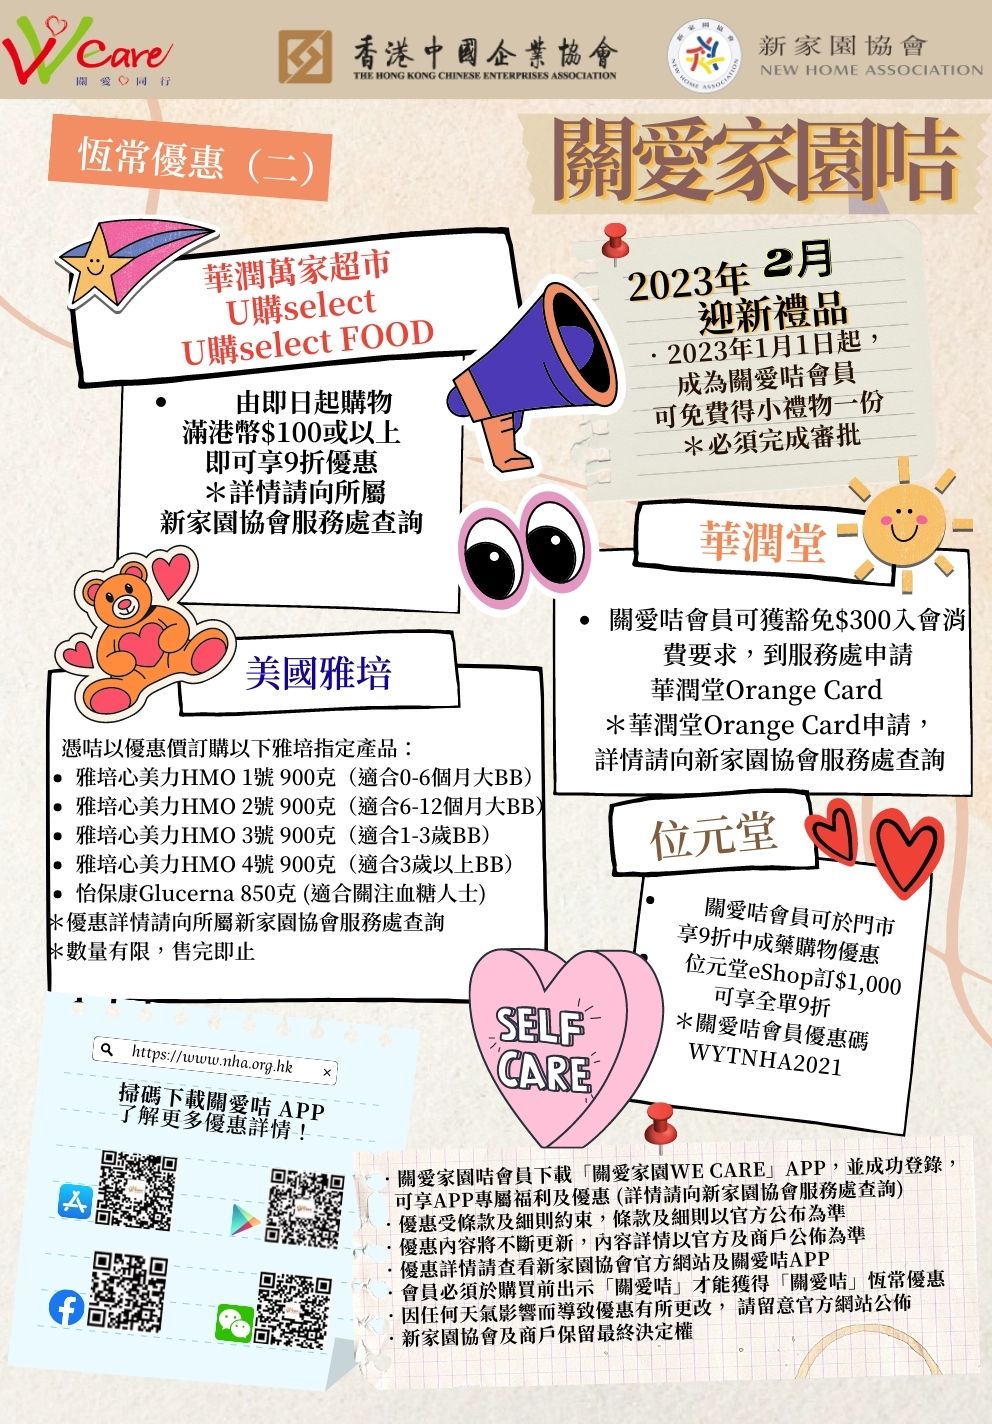 We care
關愛同行
香港中國企業協會
THE HONG KONG CHINESE ENTERPRISES ASSOCIATION
新家園協會
NEW HOME ASSOCIATION
新家園協會
NEW HOME ASSOCIATION
恆常優惠（二）
關愛家園咭
華潤萬家超市
U購select
U購select FOOD
• 由即日起購物
滿港幣$100或以上
即可享9折優惠
＊詳情請向所屬
新家園協會服務處查詢
2023年 2月
迎新禮品
· 2023年1月1日起，
成為關愛咭會員
可免費得小禮物一份
＊必須完成審批
華潤堂
• 關愛咭會員可獲豁免$300入會消
費要求，到服務處申請
華潤堂Orange Card
＊華潤堂Orange Card申請，
詳情請向新家園協會服務處查詢
美國雅培
憑咭以優惠價訂購以下雅培指定產品：
• 雅培心美力HMO 1號 900克（適合0-6個月大BB）
• 雅培心美力HMO 2號 900克（適合6-12個月大BB）
• 雅培心美力HMO 3號 900克（適合1-3歲BB）
• 雅培心美力HMO 4號 900克（適合3歲以上BB）
• 怡保康Glucerna 850克 (適合關注血糖人士)
＊優惠詳情請向所屬新家園協會服務處查詢
＊數量有限，售完即止
位元堂
• 關愛咭會員可於門市
享9折中成藥購物優惠
• 位元堂eShop訂$1,000
可享全單9折
＊關愛咭會員優惠碼
WYTNHA2021
SELF
CARE
https://www.nha.org.hk ×
掃碼下載關愛咭 APP
了解更多優惠詳情！
· 關愛家園咭會員下載「關愛家園WE CARE」APP，並成功登錄，
可享APP專屬福利及優惠 (詳情請向新家園協會服務處查詢)
· 優惠受條款及細則約束，條款及細則以官方公布為準
· 優惠內容將不斷更新，內容詳情以官方及商戶公佈為準
· 優惠詳情請查看新家園協會官方網站及關愛咭APP
· 會員必須於購買前出示「關愛咭」才能獲得「關愛咭」恆常優惠
· 因任何天氣影響而導致優惠有所更改， 請留意官方網站公佈
· 新家園協會及商戶保留最終決定權